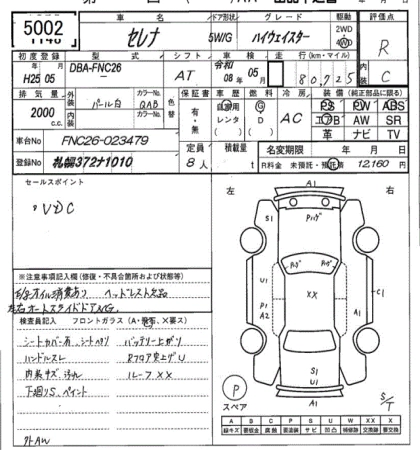 5002
車名 ドア形状 グレード 駆動 評価点
セレナ 5W/G ハイウェイスター 2WD 4WD R
初度登録 型式 シフト 車検 走行(km・マイル) 内装
H25 05 DBA-FNC26 AT 令和 08年05月 80,725 C
排気量 外装 カラーNo. 色替 保証書 車歴 燃料 冷房 装備(純正部品に限る)
2000 c.c. パール白 QAB 有・無 自家用 レンタ G D AC PS PW ABS
内装 カラーNo. エアB AW SR
革 ナビ TV
車台No FNC26-023479 定員 積載量 名変期限 年 月 日
登録No 札幌372ナ1010 8人 t R料金 未預託・預託済 12,160円
セールスポイント
・VDC
左 右
A1
S1
Pハゲ
Pハゲ Pハゲ
U1
P1
A2
XX
C1
S1
U1
A1
P
スペア
S/T
※注意事項記入欄(修復・不具合箇所および状態等)
E/gオイル消費あり ヘッドレスト欠品
左右オートスライドドアNG.
検査員記入 フロントガラス(A・飛石、X要ス)
シートカバー有 シートヘタリ バッテリー上がり
ハンドルスレ Rフロア突上ゲU
内装キズ、汚れ ルーフXX
下廻りS、ペイント
外AW
A B C P S U W XX X